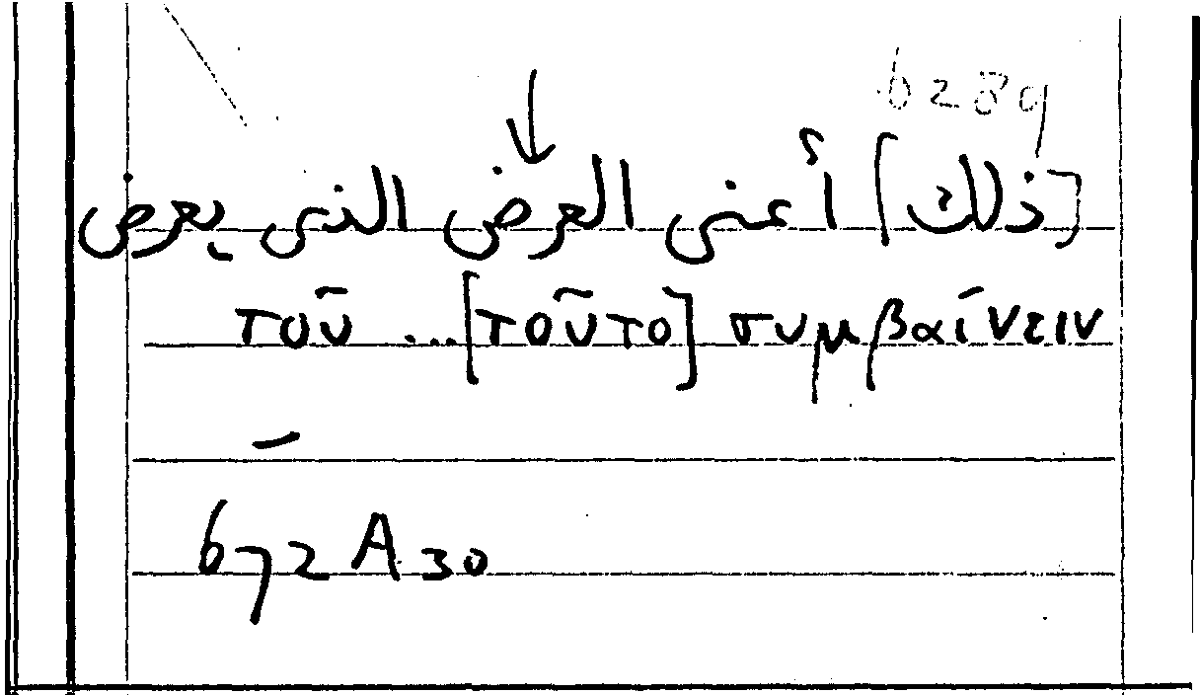 6289
[ذلك] أعنى العرض الذى يعرض
τοῦ ...[τοῦτο] συμβαίνειν
672 A 30